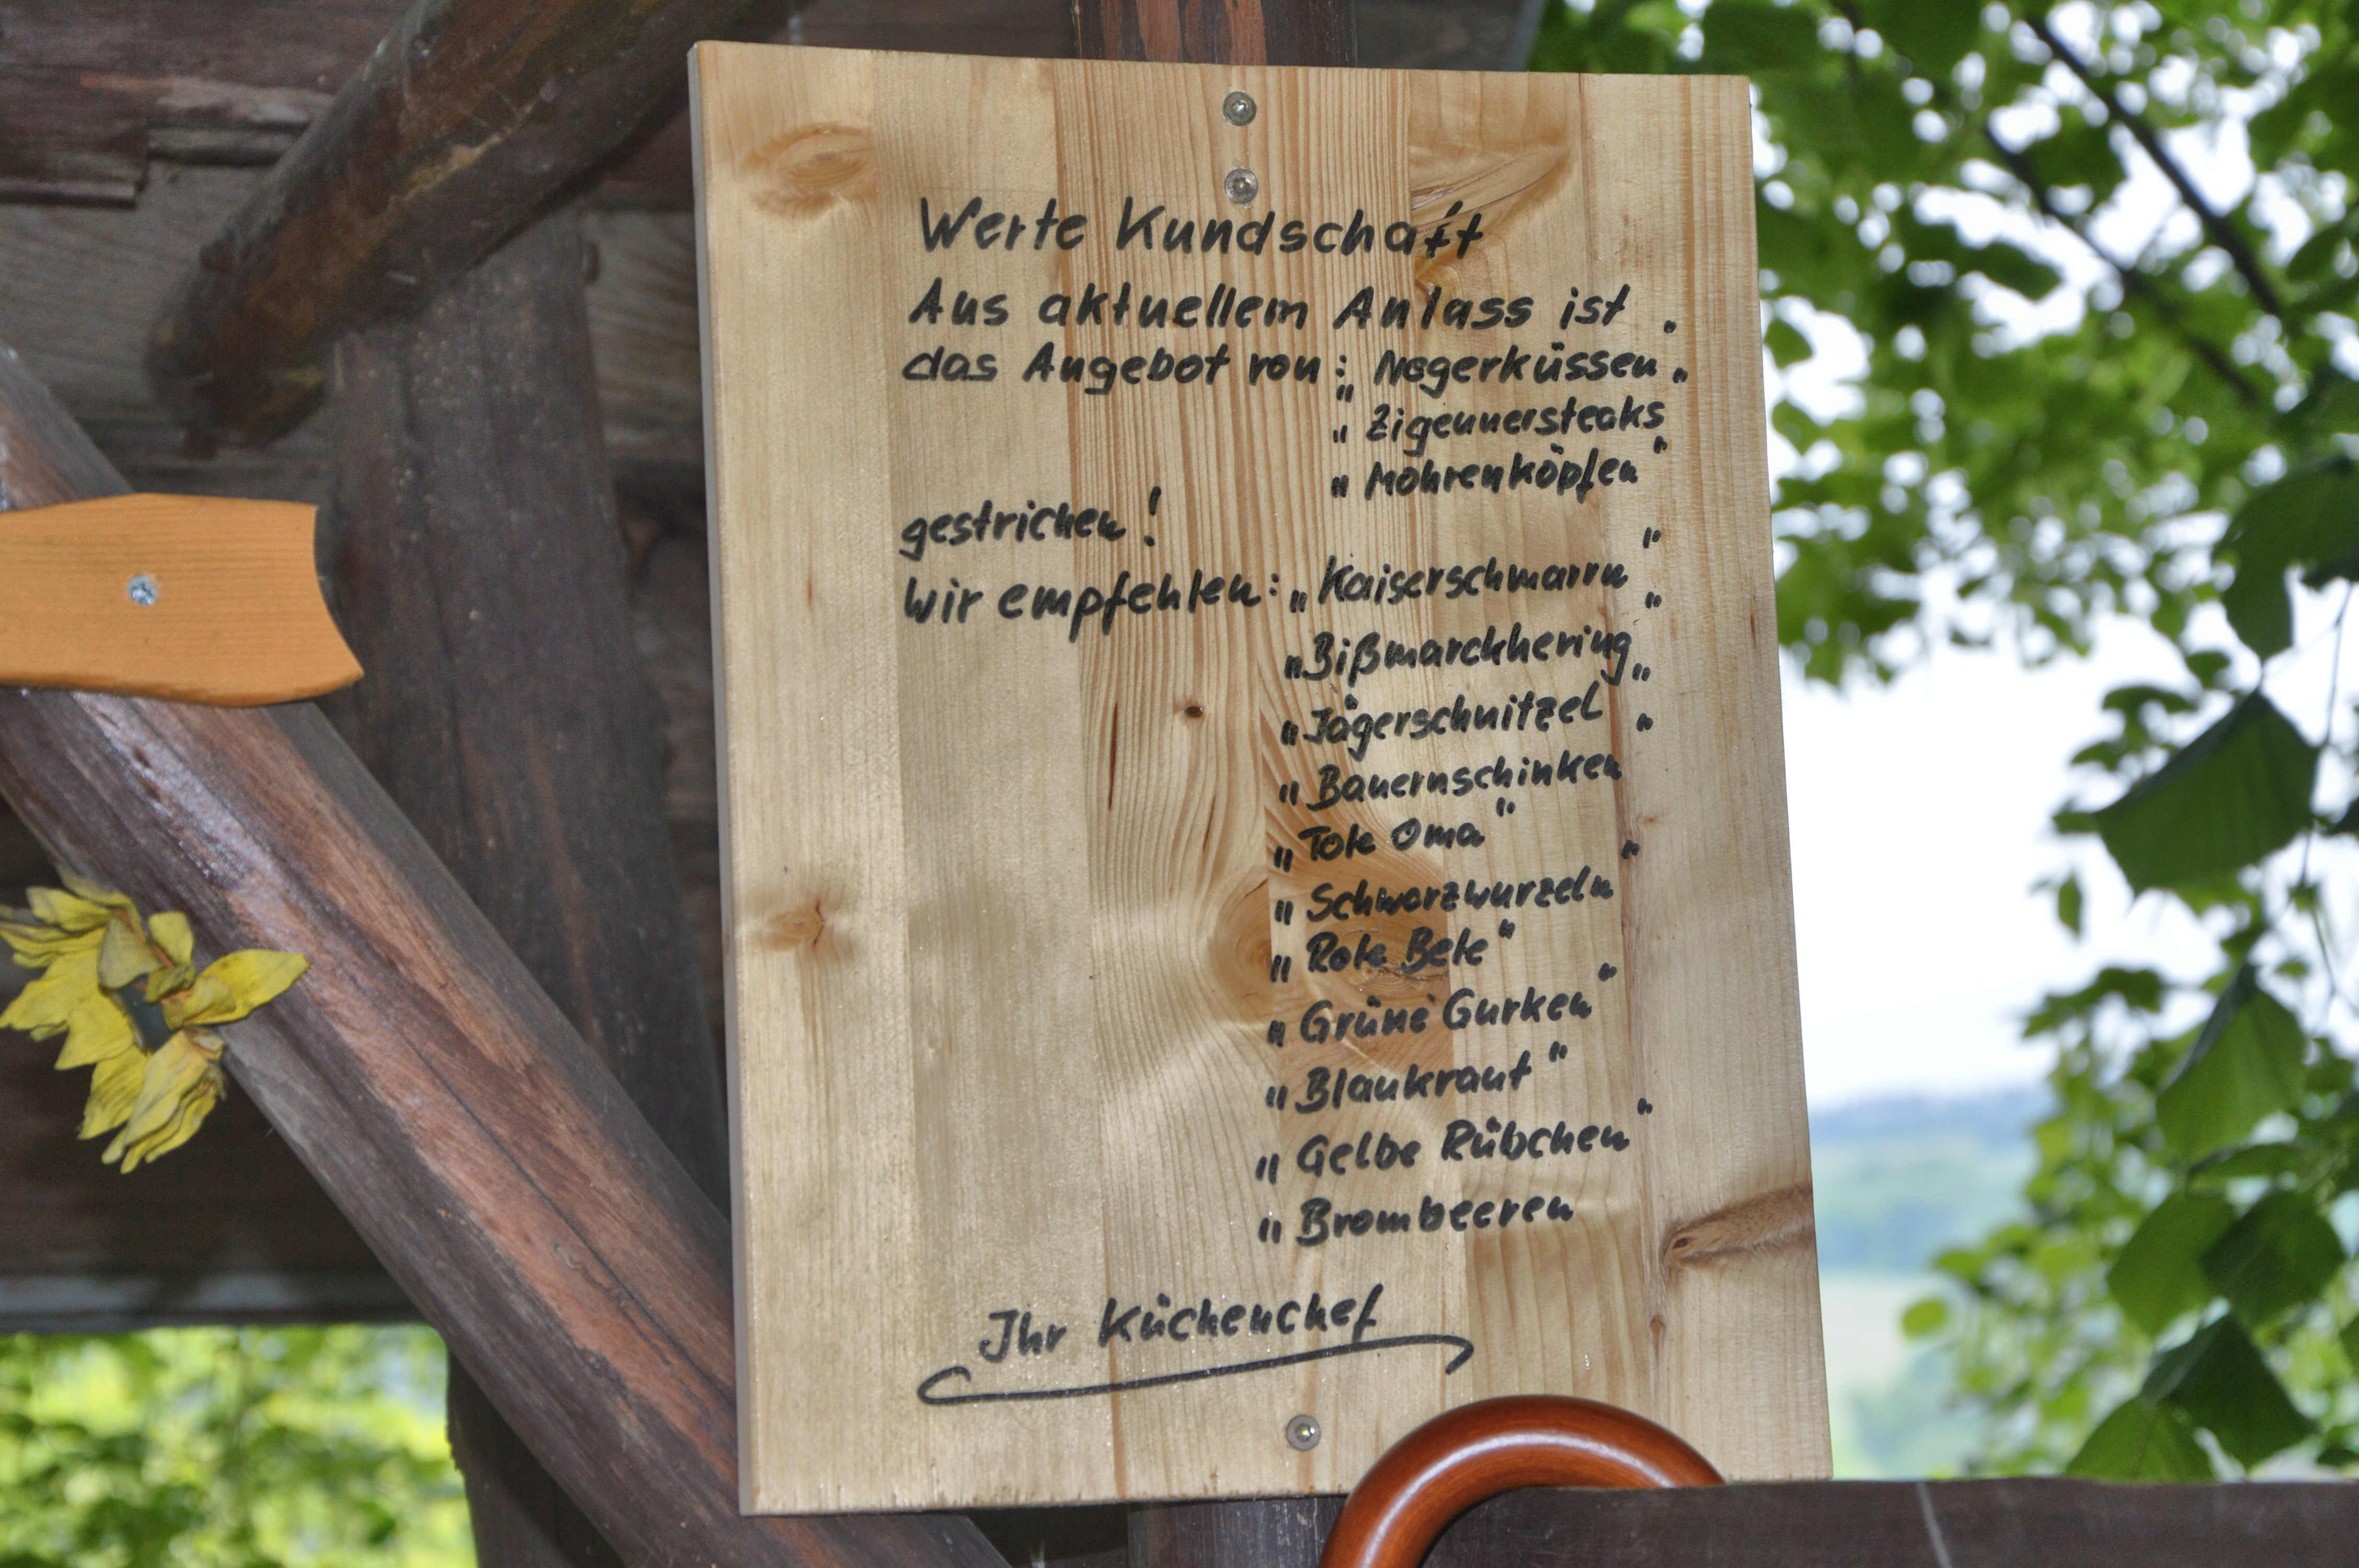 Werte Kundschaft
Aus aktuellem Anlass ist
das Angebot von: „Negerküssen"
„Zigeunersteaks"
„Mohrenköpfen"
gestrichen!
Wir empfehlen: „Kaiserschmarrn"
„Bißmarckhering"
„Jägerschnitzel"
„Bauernschinken"
„Tote Oma"
„Schwarzwurzeln"
„Rote Bete"
„Grüne Gurken"
„Blaukraut"
„Gelbe Rübchen"
„Brombeeren
Ihr Küchenchef